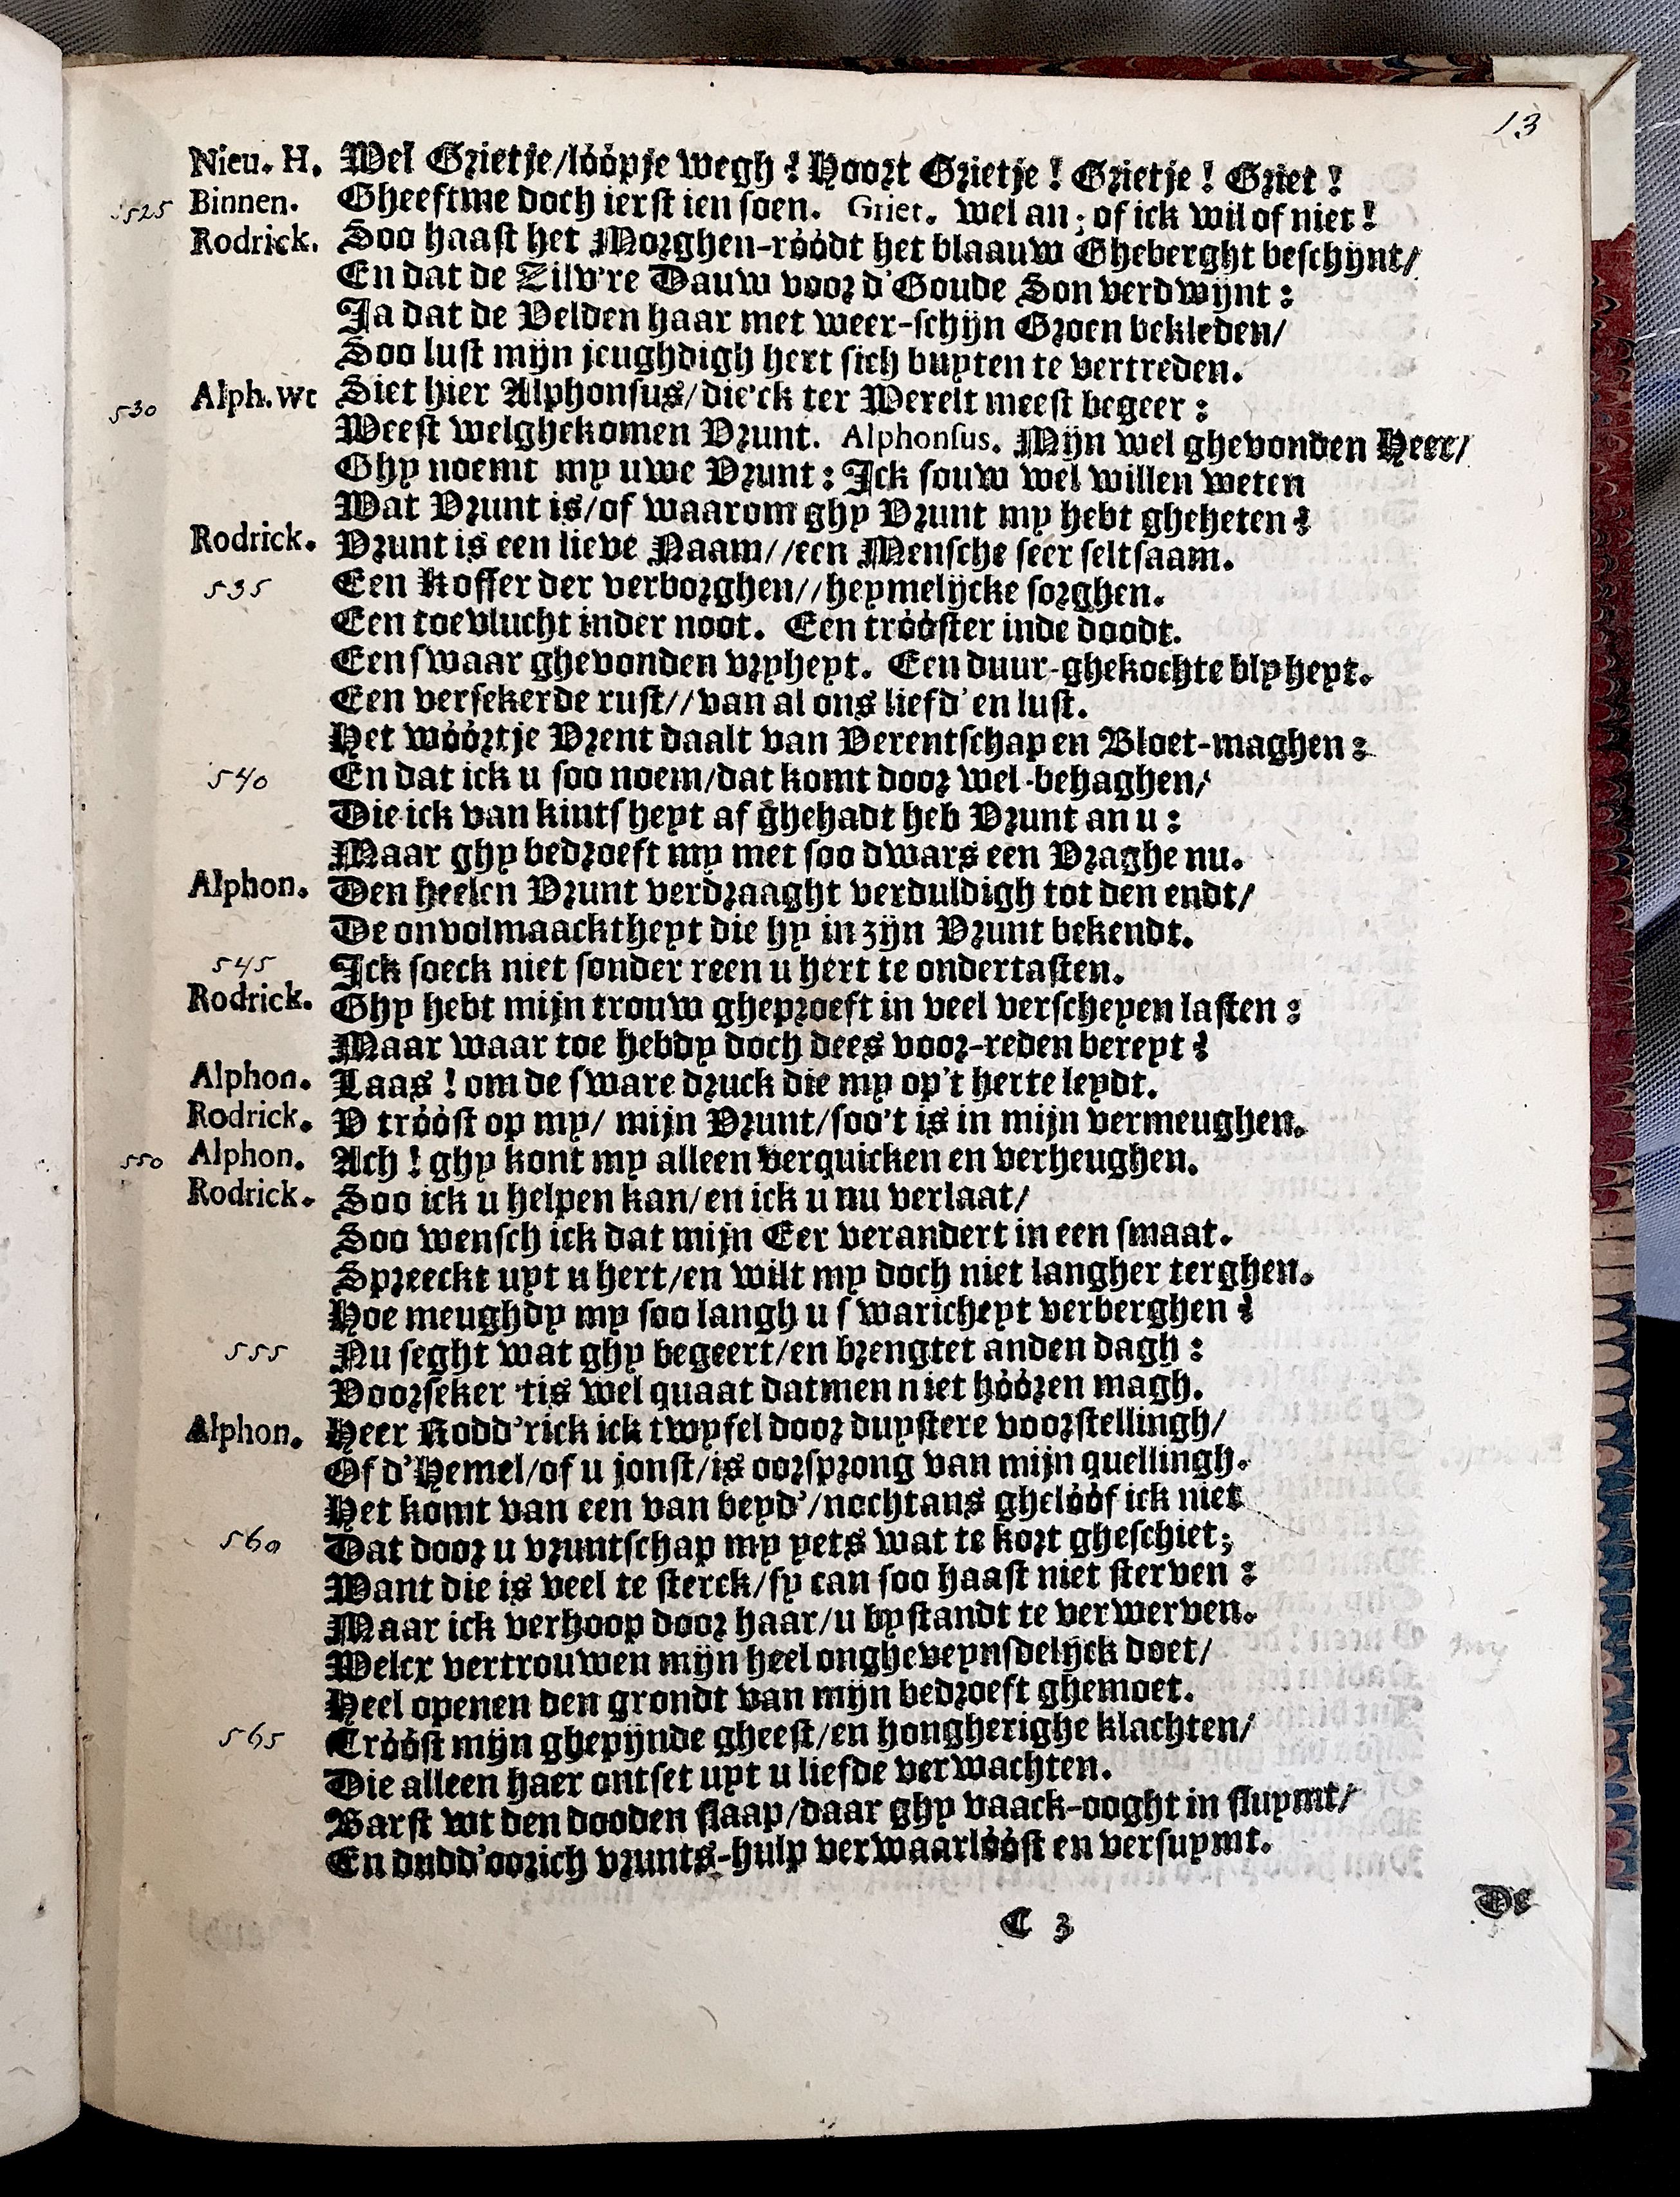 13
Nieu. H. Wel Grietje/lóópje wegh? Hoort Grietje! Grietje! Griet!
525 Binnen. Gheeftme doch ierst ien soen. Griet. wel an; of ick wil of niet!
Rodrick. Soo haast het Morghen-róódt het blaauw Gheberght beschijnt/
En dat de Zilv're Dauw voor d'Goude Son verdwijnt:
Ja dat de Velden haar met weer-schijn Groen bekleden/
Soo lust mijn jeughdigh hert sich buyten te vertreden.
530 Alph.wt Siet hier Alphonsus/die'ck ter Werelt meest begeer:
Weest welghekomen Vrunt. Alphonsus. Mijn wel ghevonden Heer/
Ghy noemt my uwe Vrunt: Ick souw wel willen weten
Wat Vrunt is/of waarom ghy Vrunt my hebt gheheten?
Rodrick. Vrunt is een lieve Naam//een Mensche seer seltsaam.
535 Een Koffer der verborghen//heymelijcke sorghen.
Een toevlucht inder noot. Een tróóster inde doodt.
Een swaar ghevonden vryheyt. Een duur-ghekochte blyheyt.
Een versekerde rust//van al ons liefd' en lust.
Het wóórtje Vrent daalt van Verentschap en Bloet-maghen:
540 En dat ick u soo noem/dat komt door wel-behaghen/
Die ick van kintsheyt af ghehadt heb Vrunt an u:
Maar ghy bedroeft my met soo dwars een Vraghe nu.
Alphon. Den heelen Vrunt verdraaght verduldigh tot den endt/
De onvolmaacktheyt die hy in zijn Vrunt bekendt.
545 Ick soeck niet sonder reen u hert te ondertasten.
Rodrick. Ghy hebt mijn trouw gheproeft in veel verscheyen lasten:
Maar waar toe hebdy doch dees voor-reden bereyt?
Alphon. Laas! om de sware druck die my op't herte leydt.
Rodrick. V tróóst op my/ mijn Vrunt/soo't is in mijn vermeughen.
550 Alphon. Ach! ghy kont my alleen verquicken en verheughen.
Rodrick. Soo ick u helpen kan/en ick u nu verlaat/
Soo wensch ick dat mijn Eer verandert in een smaat.
Spreeckt uyt u hert/en wilt my doch niet langher terghen.
Hoe meughdy my soo langh u swaricheyt verberghen?
555 Nu seght wat ghy begeert/en brengtet anden dagh:
Voorseker 'tis wel quaat datmen niet hóóren magh.
Alphon. Heer Rodd'rick ick twyfel door duystere voorstellingh/
Of d'Hemel/of u jonst/is oorsprong van mijn quellingh.
Het komt van een van beyd'/nochtans ghelóóf ick niet
560 Dat door u vruntschap my yets wat te kort gheschiet;
Want die is veel te sterck/sy can soo haast niet sterven:
Maar ick verhoop door haar/u bystandt te verwerven.
Welcx vertrouwen mijn heel ongheveynsdelijck doet/
Heel openen den grondt van mijn bedroeft ghemoet.
565 Tróóst mijn ghepijnde gheest/en hongherighe klachten/
Die alleen haer ontset uyt u liefde verwachten.
Barst wt den dooden slaap/daar ghy vaack-ooght in sluymt/
En dudd'oorich vrunts-hulp verwaarlóóst en versuymt.
C 3
De